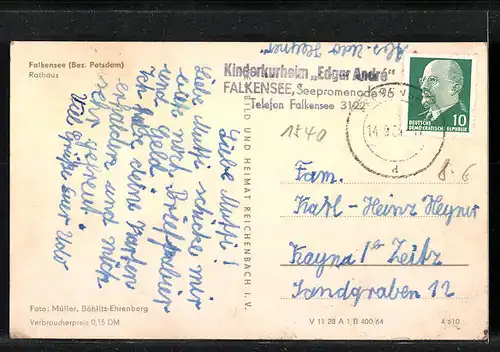 Falkensee (Bez. Potsdam)
Rathaus
Liebe Mutti!
Liebe Mutti schicke mir
bitte noch Briefpapier
und Geld.
Ich habe deine Karten
erhalten und mich
sehr gefreut.
Viele Grüße euer Udo
Foto: Müller, Böhlitz-Ehrenberg
Verbraucherpreis 0,15 DM
BILD UND HEIMAT REICHENBACH I. V.
Abs. Udo Heyner
Kinderkurheim „Edgar André"
FALKENSEE, Seepromenade
Telefon Falkensee 3122
10
DEUTSCHE
DEMOKRATISCHE REPUBLIK
1540
8.€
Fam.
Karl-Heinz Heyner
Kayna b Zeitz
Landgraben 12
V 11 28 A 1/B 400/64
4 610